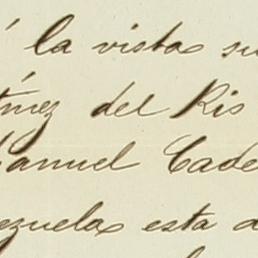 á la vista su
tínez del Rio
Manuel Cade
ezuela esta d